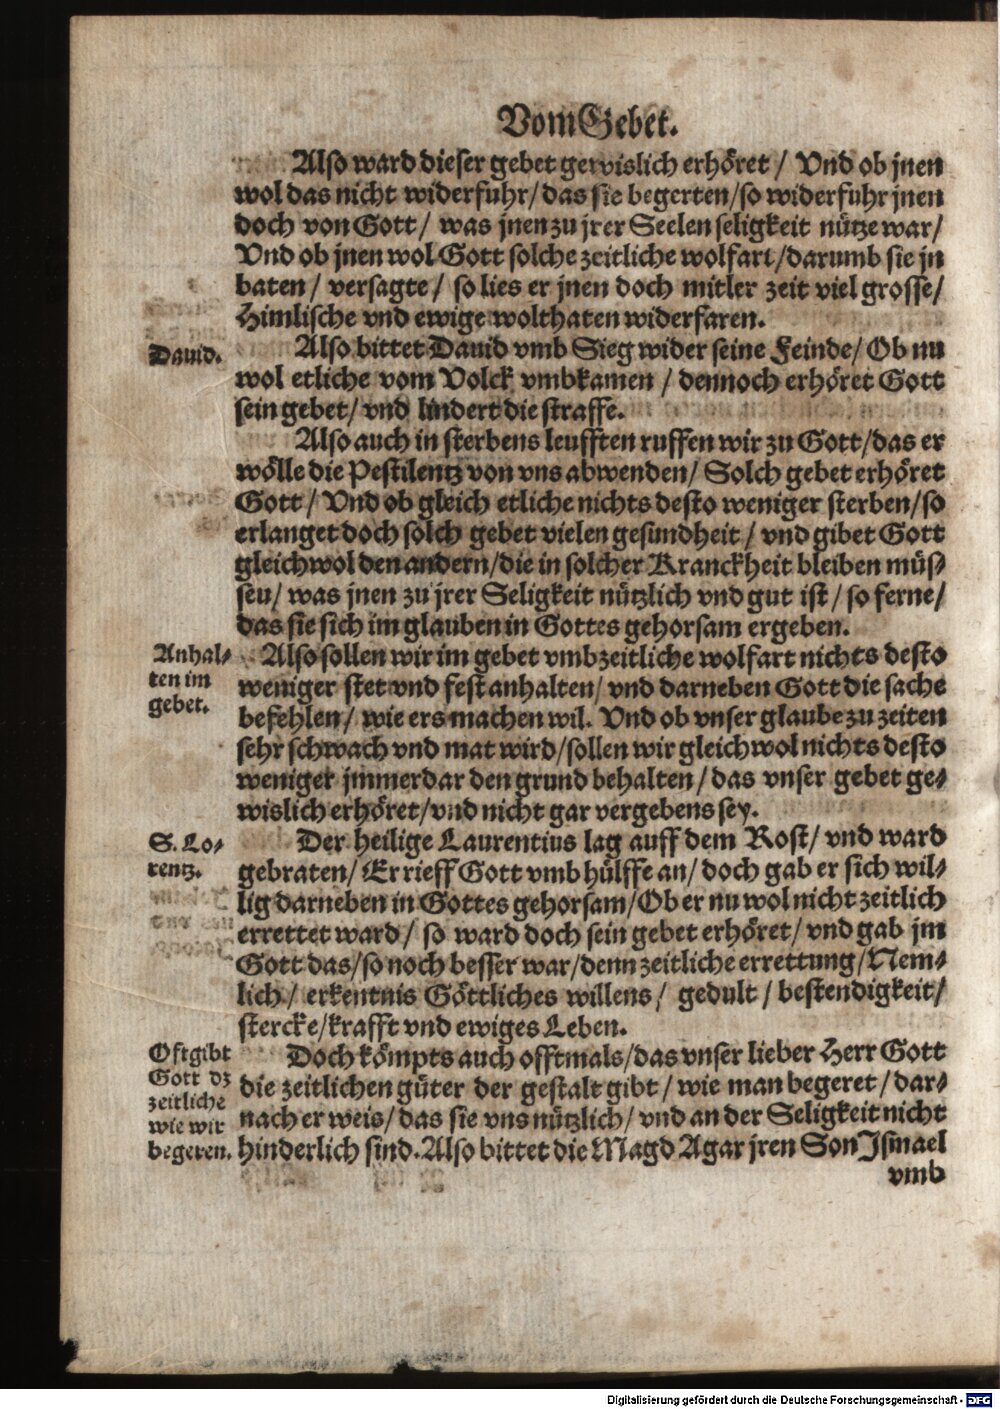 Vom Gebet.
Also ward dieser gebet gewislich erhöret / Vnd ob jnen
wol das nicht widerfuhr / das sie begerten / so widerfuhr jnen
doch von Gott / was jnen zu jrer Seelen seligkeit nütze war /
Vnd ob jnen wol Gott solche zeitliche wolfart / darumb sie jn
baten / versagte / so lies er jnen doch mitler zeit viel grosse /
Himlische vnd ewige wolthaten widerfaren.
Dauid.
Also bittet Dauid vmb Sieg wider seine Feinde / Ob nu
wol etliche vom Volck vmbkamen / dennoch erhöret Gott
sein gebet / vnd lindert die straffe.
Also auch in sterbens leufften ruffen wir zu Gott / das er
wölle die Pestilentz von vns abwenden / Solch gebet erhöret
Gott / Vnd ob gleich etliche nichts desto weniger sterben / so
erlanget doch solch gebet vielen gesundheit / vnd gibet Gott
gleichwol den andern / die in solcher Kranckheit bleiben müs-
seu / was jnen zu jrer Seligkeit nützlich vnd gut ist / so ferne /
das sie sich im glauben in Gottes gehorsam ergeben.
Anhal-
ten im
gebet.
Also sollen wir im gebet vmb zeitliche wolfart nichts desto
weniger stet vnd fest anhalten / vnd darneben Gott die sache
befehlen / wie ers machen wil. Vnd ob vnser glaube zu zeiten
sehr schwach vnd mat wird / sollen wir gleichwol nichts desto
weniger jmmerdar den grund behalten / das vnser gebet ge-
wislich erhöret / vnd nicht gar vergebens sey.
S. Lo-
rentz.
Der heilige Laurentius lag auff dem Rost / vnd ward
gebraten / Er rieff Gott vmb hülffe an / doch gab er sich wil-
lig darneben in Gottes gehorsam / Ob er nu wol nicht zeitlich
errettet ward / so ward doch sein gebet erhöret / vnd gab jm
Gott das / so noch besser war / denn zeitliche errettung / Nem-
lich / erkentnis Göttliches willens / gedult / bestendigkeit /
stercke / krafft vnd ewiges Leben.
Oft gibt
Gott dz
zeitliche
wie wir
begeren.
Doch kömpts auch offtmals / das vnser lieber Herr Gott
die zeitlichen güter der gestalt gibt / wie man begeret / dar-
nach er weis / das sie vns nützlich / vnd an der Seligkeit nicht
hinderlich sind. Also bittet die Magd Agar jren Son Ismael
vmb
Digitalisierung gefördert durch die Deutsche Forschungsgemeinschaft - DFG